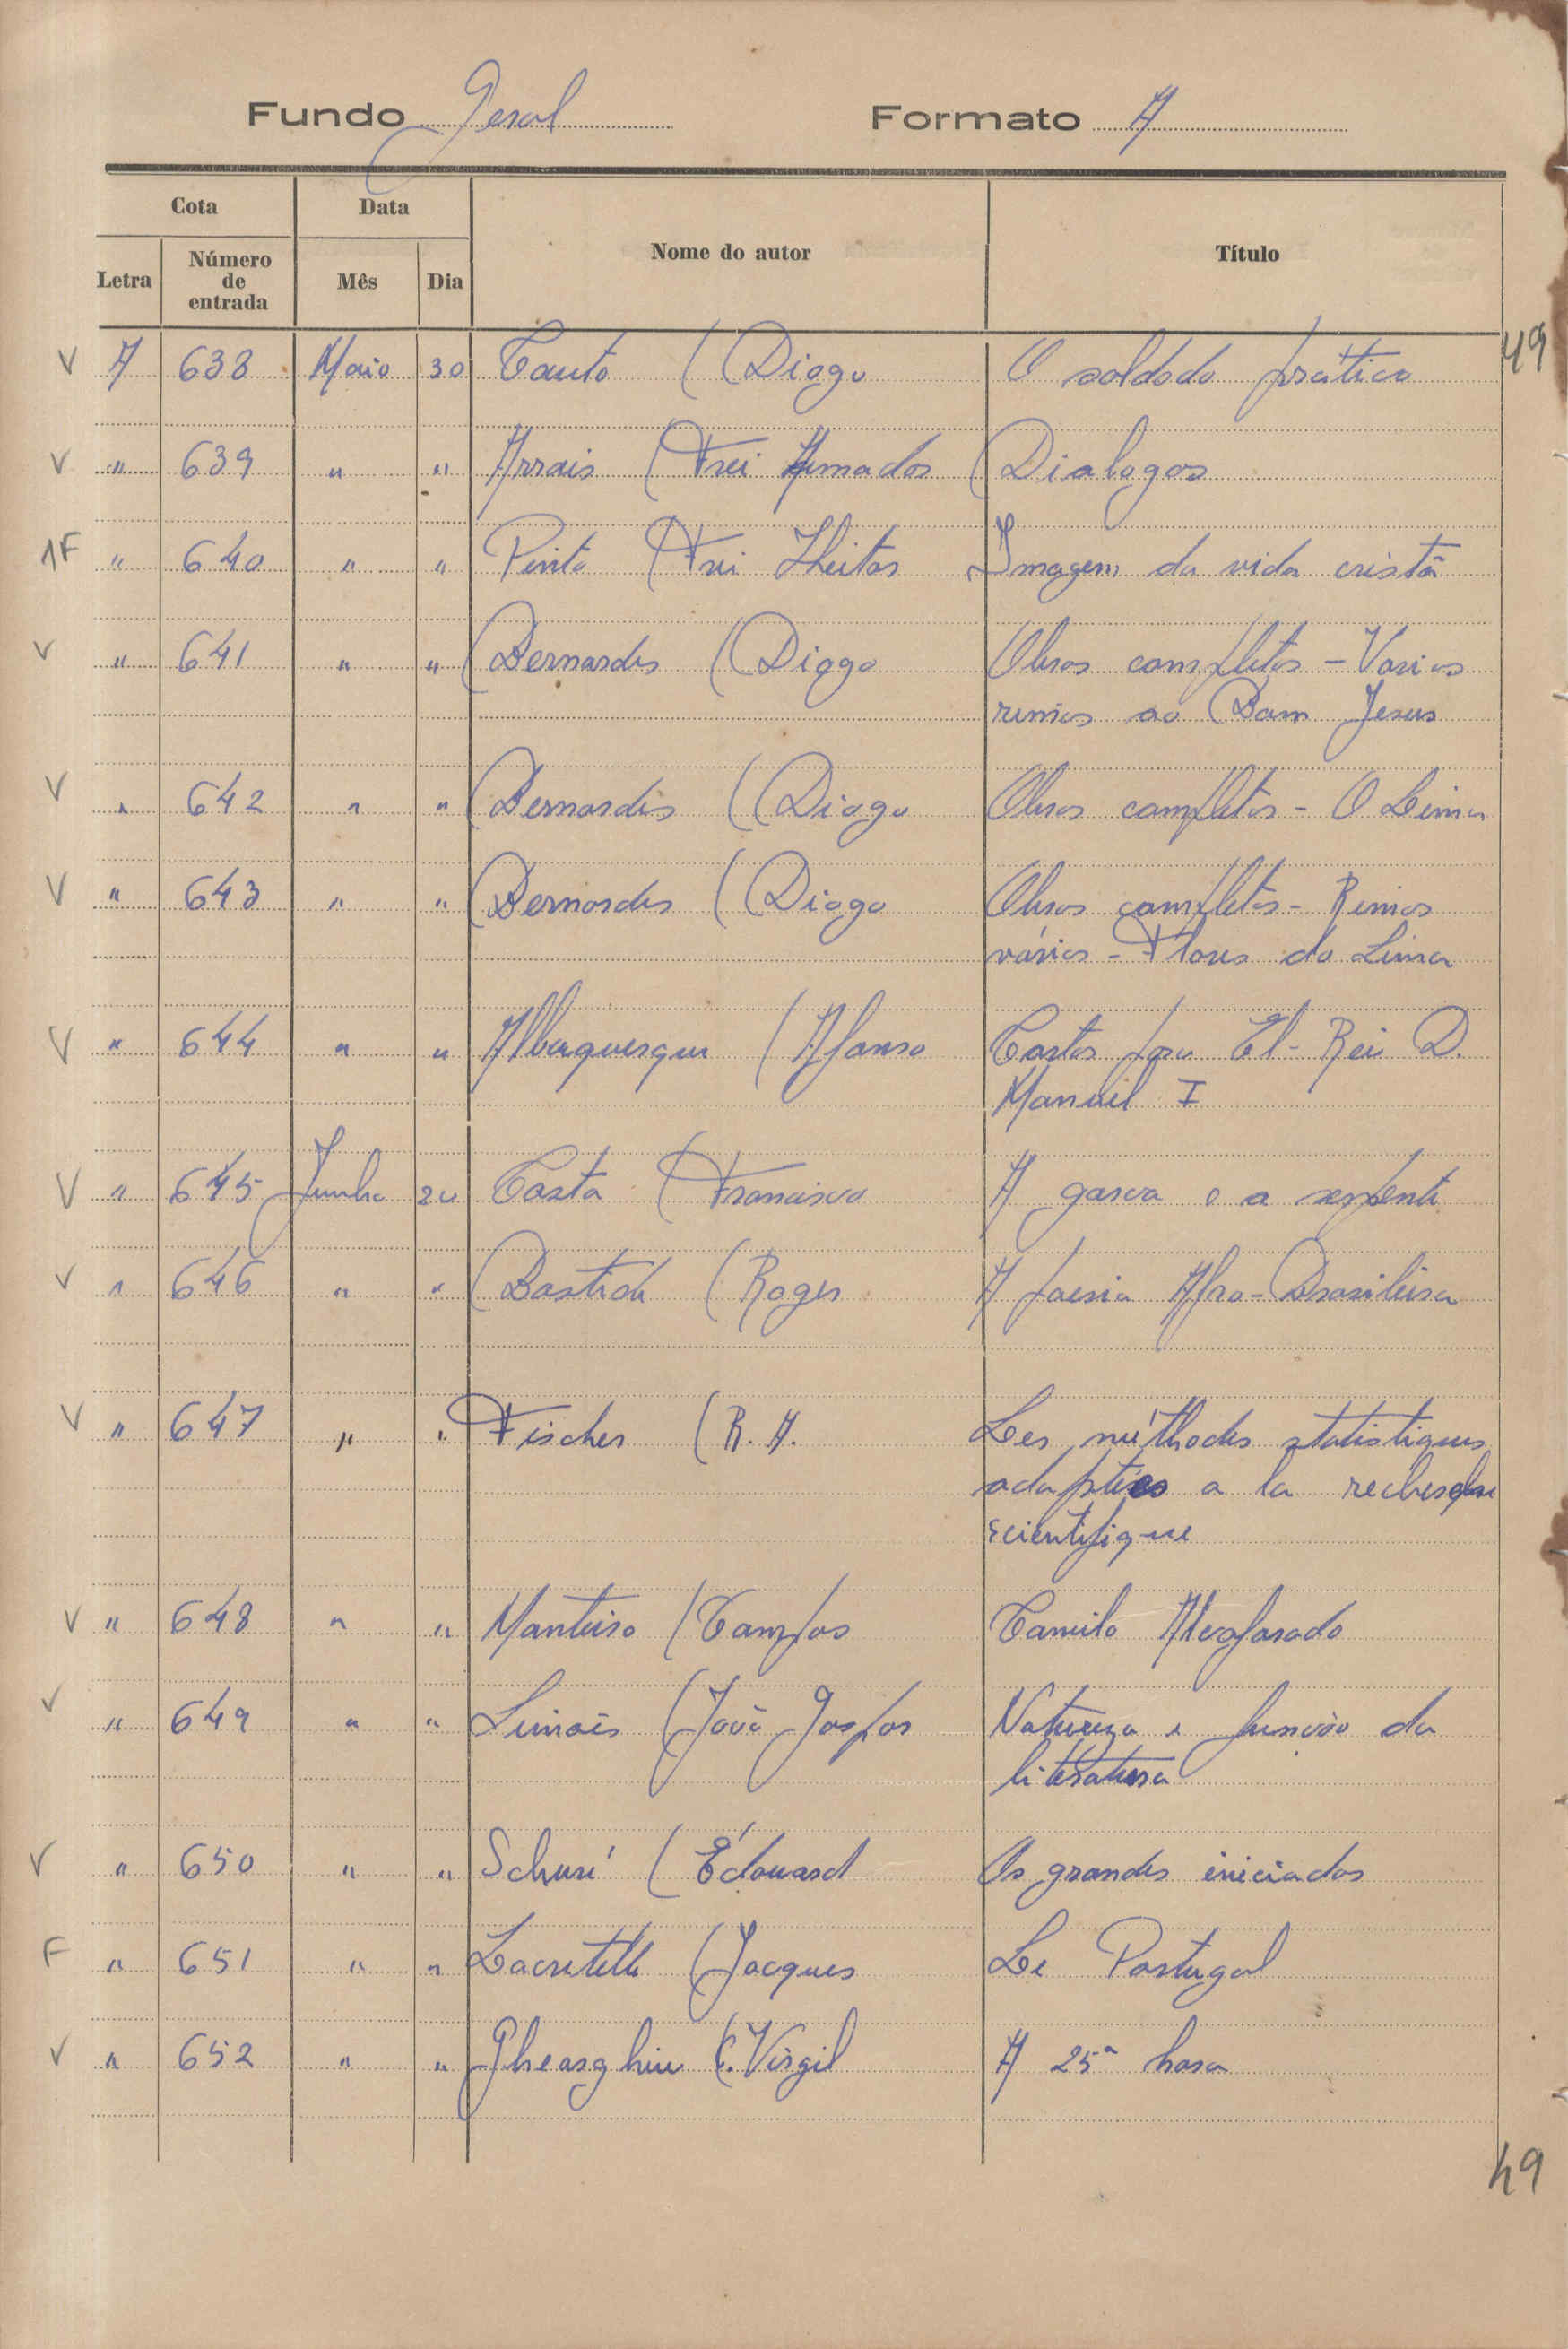 Fundo Geral Formato A
Cota Data Nome do autor Título
Letra Número de entrada Mês Dia
49
V A 638 Maio 30 Couto (Diogo O soldado prático
V " 639 " " Arrais (Frei Amados Dialogos
1F " 640 " " Pinto (Frei Heitor Imagem da vida cristã
V " 641 " " Bernardes (Diogo Obras completas - Varias
rimas ao Bom Jesus
V " 642 " " Bernardes (Diogo Obras completas - O Lima
V " 643 " " Bernardes (Diogo Obras completas - Rimas
várias - Flores do Lima
V " 644 " " Albuquerque (Afonso Cartas para El-Rei D.
Manuel I
V " 645 Junho 20 Costa (Francisco A garça e a serpente
V " 646 " " Bastide (Roger A poesia Afro-Brasileira
V " 647 " " Fischer (R. A. Les méthodes statistiques
adaptées a la recherche
scientifique
V " 648 " " Monteiro (Campos Camilo Alcoforado
V " 649 " " Simões (João Gaspar Natureza e função da
literatura
V " 650 " " Schuré (Édouard Os grandes iniciados
F " 651 " " Lacretelle (Jacques Le Portugal
V " 652 " " Gheorghiu (C. Virgil A 25ª hora
49